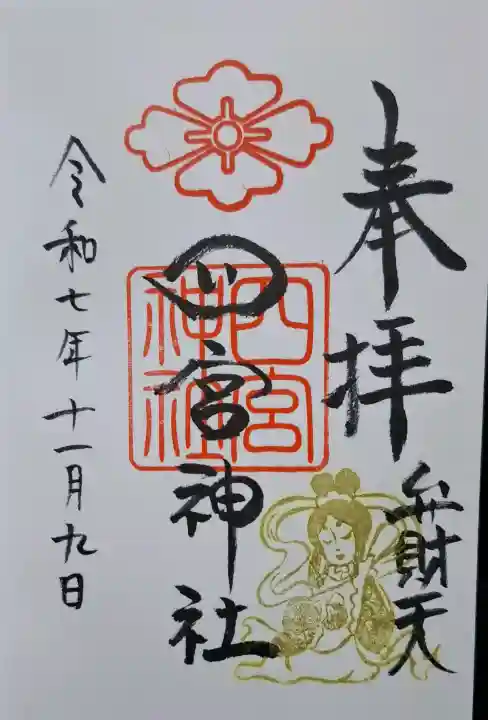 奉拝
弁財天
四宮神社
四宮神社
令和七年十一月九日